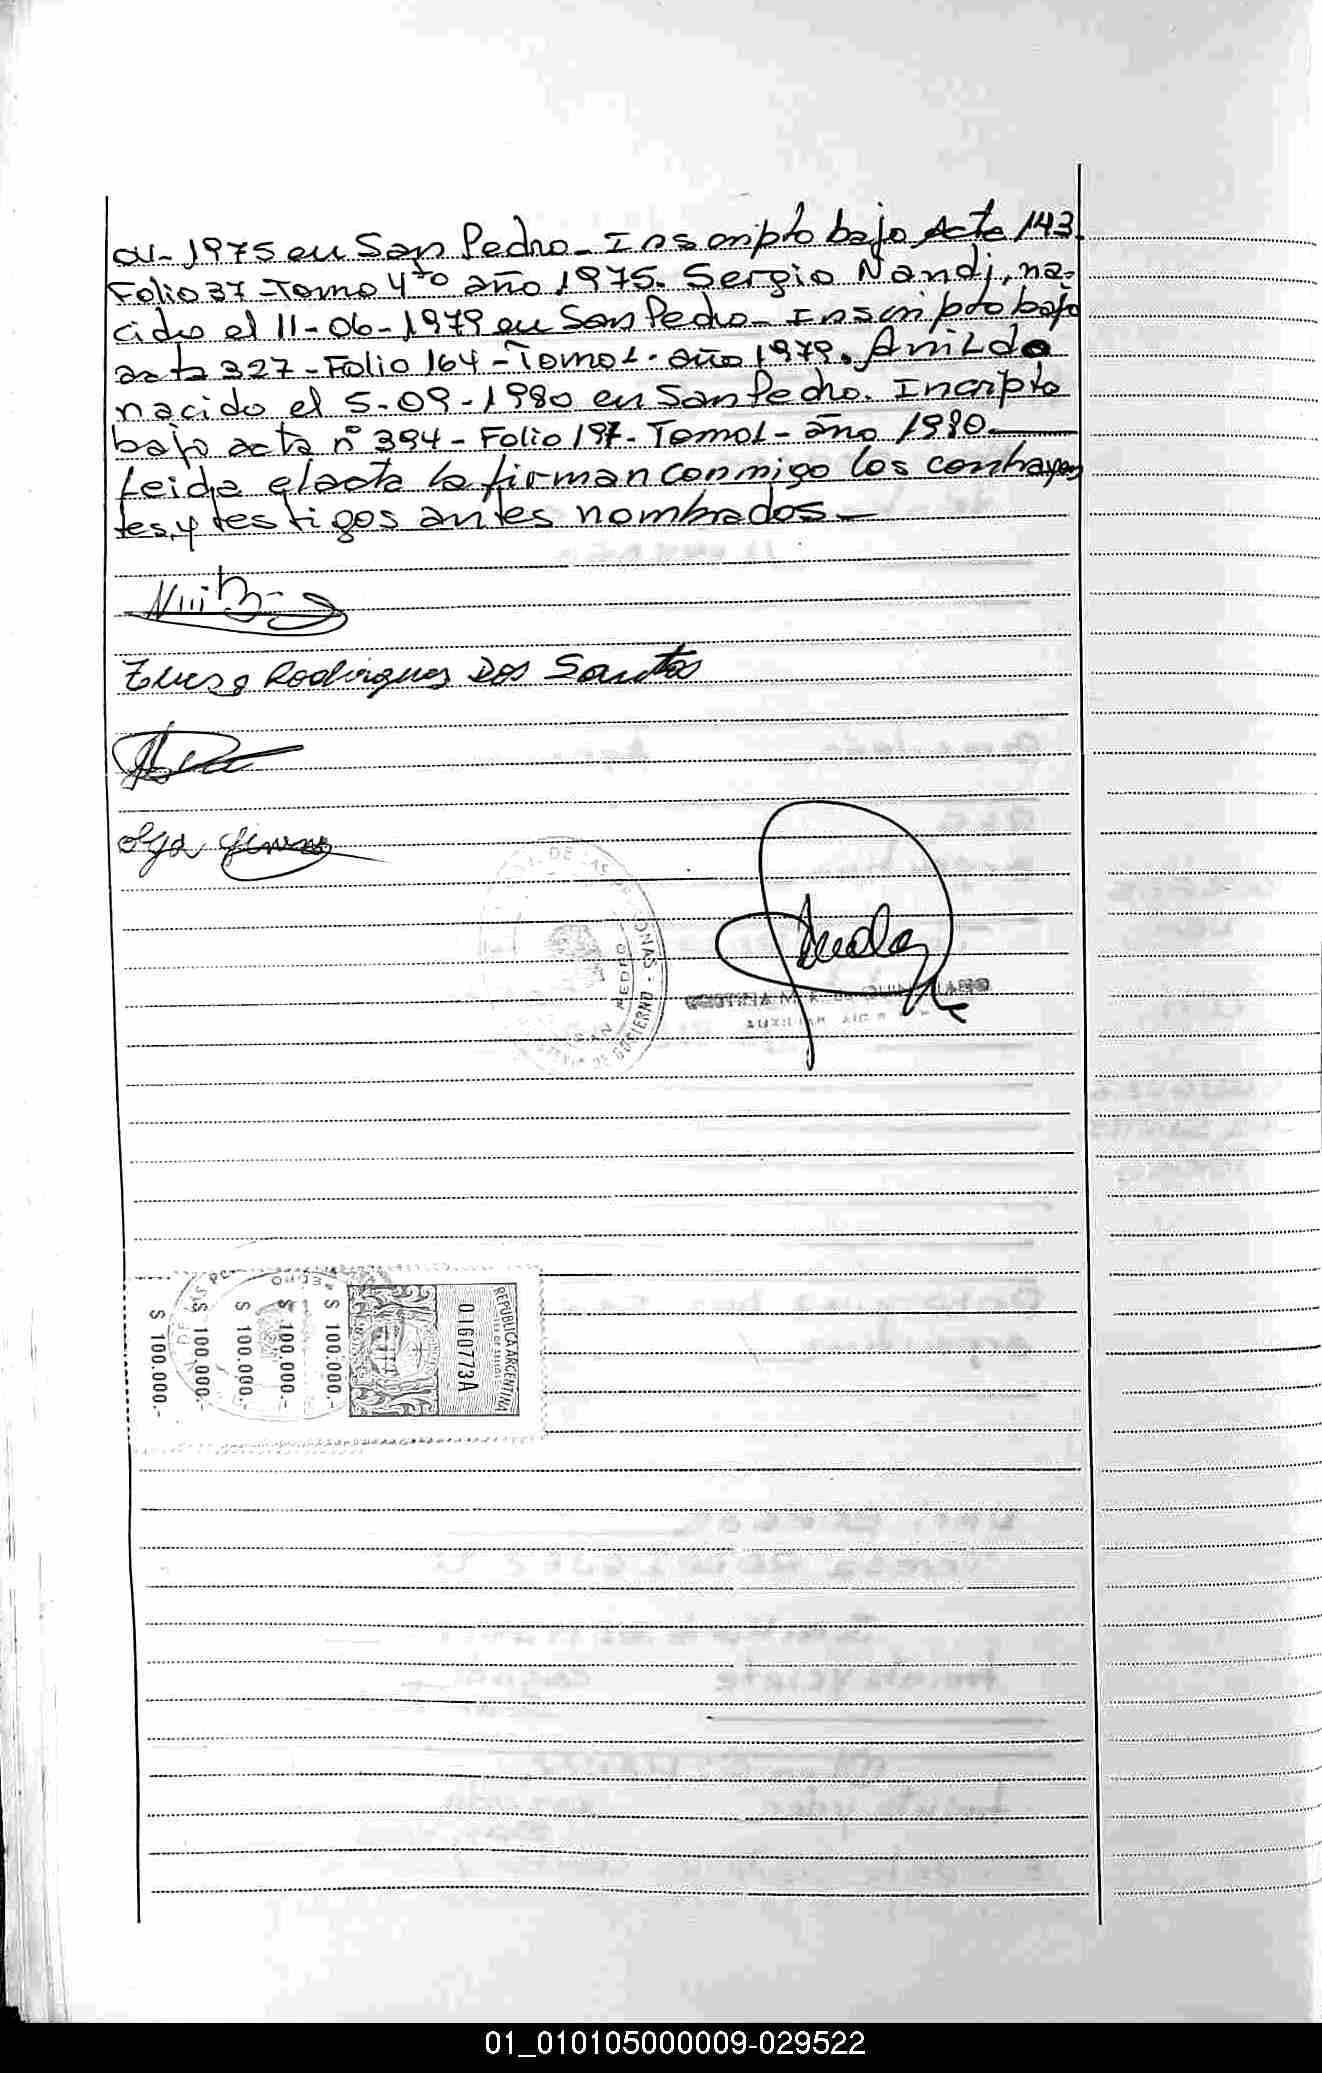 01-1975 en San Pedro - Inscripto bajo Acta 143
Folio 37 - Tomo 4to año 1975. Sergio Nandi, na-
cido el 11-06-1979 en San Pedro - Inscripto bajo
acta 327 - Folio 164 - Tomo 1. año 1979. Anildo
nacido el 5-09-1980 en San Pedro. Incripto
bajo acta nº 394 - Folio 197 - Tomo 1 - año 1980.
Leida el acta la firman conmigo los contrayen
tes, y testigos antes nombrados -
Rodriguez Dos Santos
Olga
SAN PEDRO
DE GOBIERNO
REPUBLICA ARGENTINA
0160773A
$ 100.000.-
$ 100.000.-
$ 100.000.-
$ 100.000.-
$ 100.000.-
01_010105000009-029522